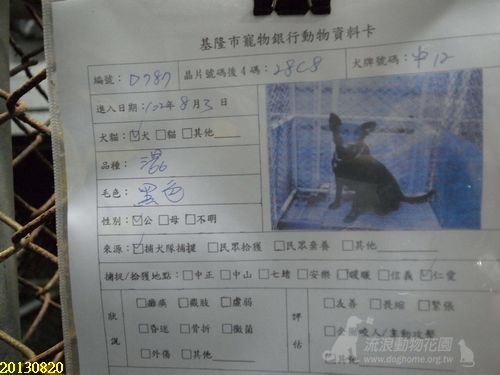 基隆市寵物銀行動物資料卡
編號：D787 晶片號碼後4碼：28C8 犬牌號碼：中12
進入日期：102年8月3日
犬貓：☑犬 □貓 □其他
品種：混
毛色：黑色
性別：☑公 □母 □不明
來源：☑捕犬隊捕捉 □民眾拾獲 □民眾棄養 □其他
捕捉/拾獲地點：□中正 □中山 □七堵 □安樂 □暖暖 □信義 ☑仁愛
狀況 □癱瘓 □截肢 □虛弱 評估 □友善 □畏縮 □緊張
□昏迷 □骨折 □黴菌 □會咬人/主動攻擊
□外傷 □其他 □其他
流浪動物花園
www.doghome.org.tw
20130820